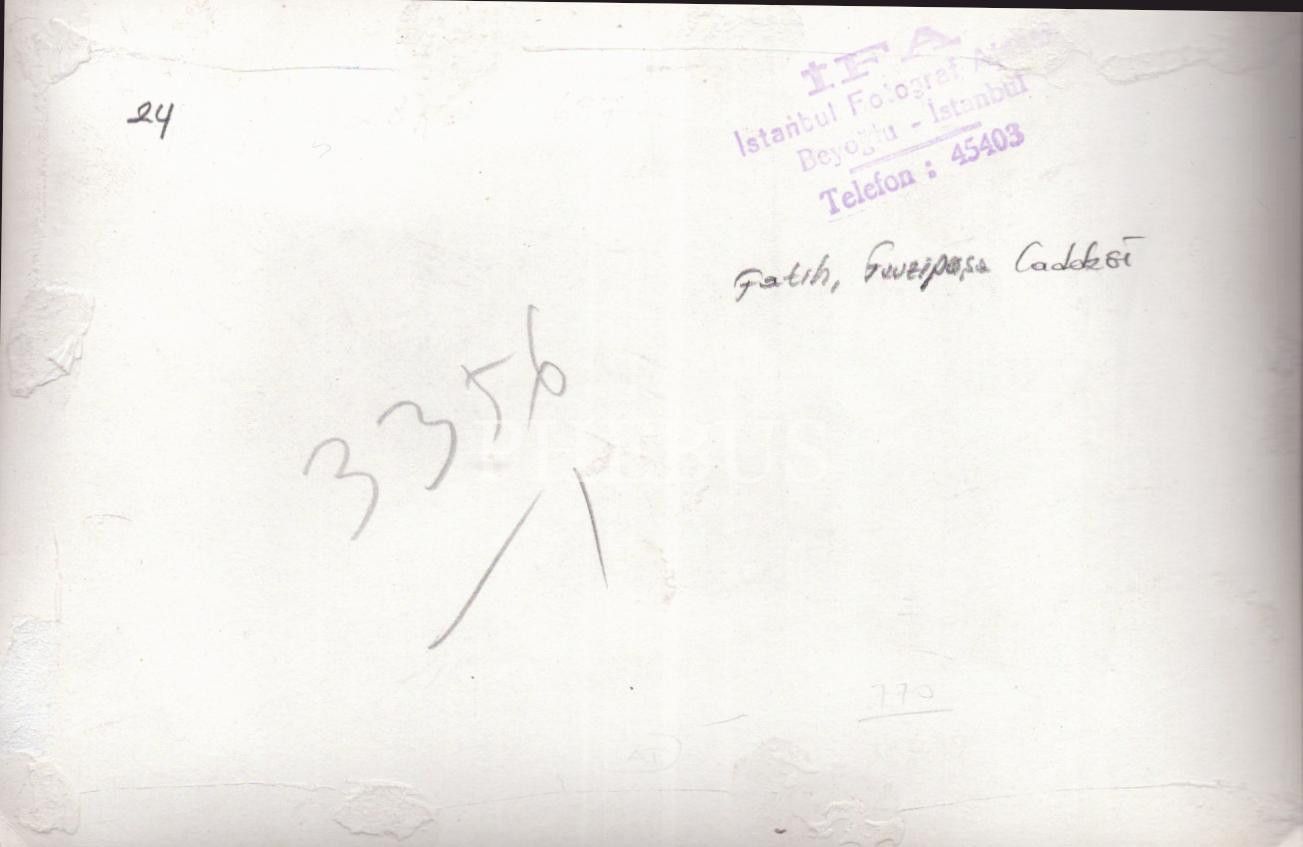 24
İFA
Istanbul Fotoğraf Ajansı
Beyoğlu - İstanbul
Telefon : 45403
Fatih, Fevzipaşa Caddesi
3356
PHEBUS
770